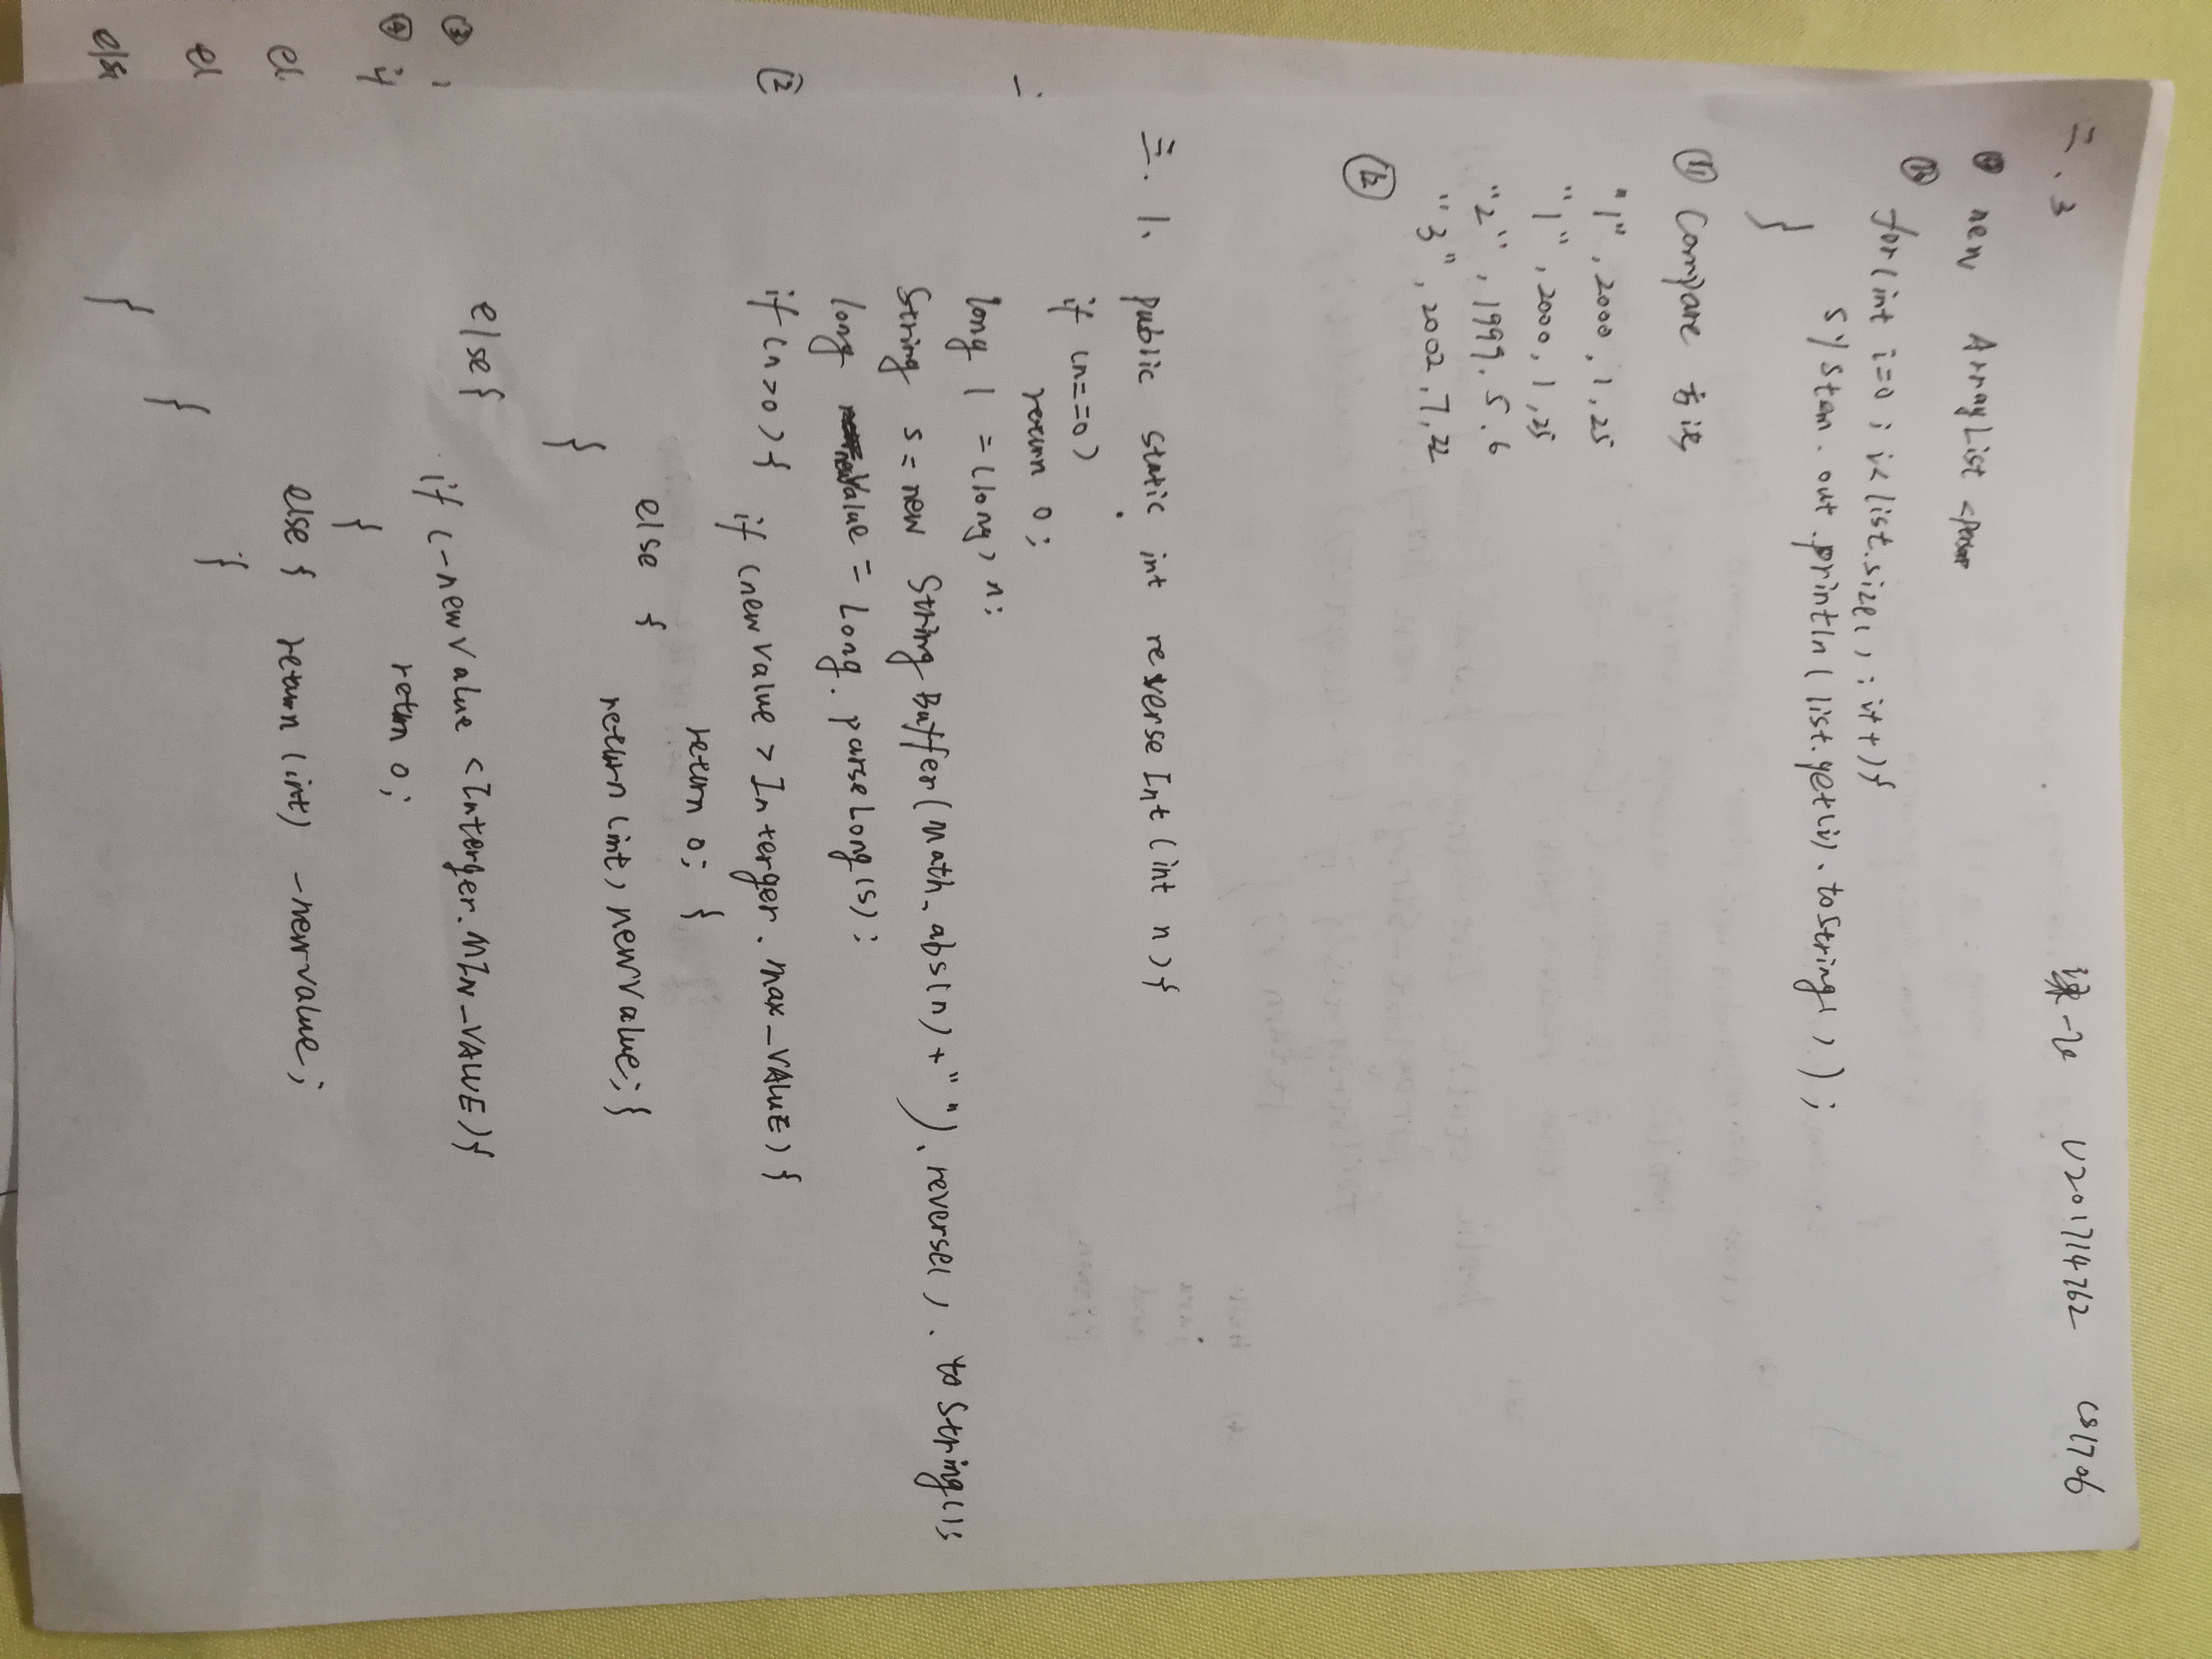 二.3 梁一飞 U201714762 CS1706
⑨ new ArrayList <Person
⑩ for(int i=0; i<list.size(); i++){
System.out.println(list.get(i).toString());
}
⑪ Compare 方法
"1", 2000, 1, 25
"1", 2000, 1, 25
"2", 1999. 5. 6
"3", 2002, 7, 22
⑫
三. 1、 public static int reverseInt(int n){
if (n==0)
return 0;
long l = (long) n;
String s = new StringBuffer(Math.abs(n)+"").reverse().toString();
long newValue = Long.parseLong(s);
if (n>0){ if (newValue > Interger.max_VALUE){
return 0; }
else {
return (int) newValue; }
}
else{
if (-newValue <Interger.MIN_VALUE){
return 0;
}
else { return (int) -newValue;
}
}
}
一
[2
③
④ if
el
el
else